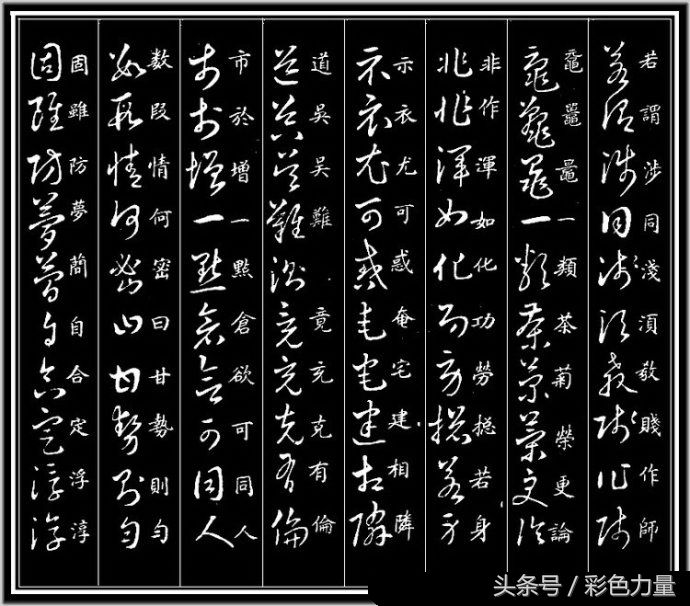 若謂涉同淺湏敎賤作師
一類茶菊榮更論
非作渾如化功勞摠若身
示衣尤可惑奄宅建相隣
道吳吳難竟充克有倫
市於增一點倉欲可同人
数段情何密曰甘勢則勻
固雖防夢蕳自合定浮淳
头条号 / 彩色力量